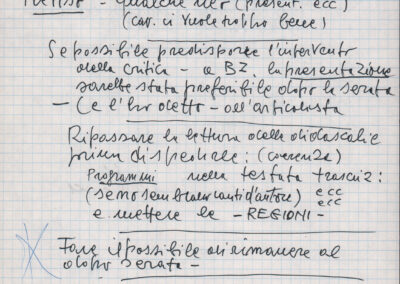 qualche neo (present. ecc)
(car. ci vuole troppo bene)
Se possibile predisporre l'intervento
della critica - a BZ. la presentazione
sarebbe stata preferibile dopo la serata
- Ce l'ho detto - all'articolista
Ripassare la lettura delle didascalie
prima di spedirle: (coerenza)
Programmi nella testata teasciz:
(se no sembrano canti d'autore) ecc
ecc
e mettere le - REGIONI -
Fare il possibile di rimanere al
dopo serata -